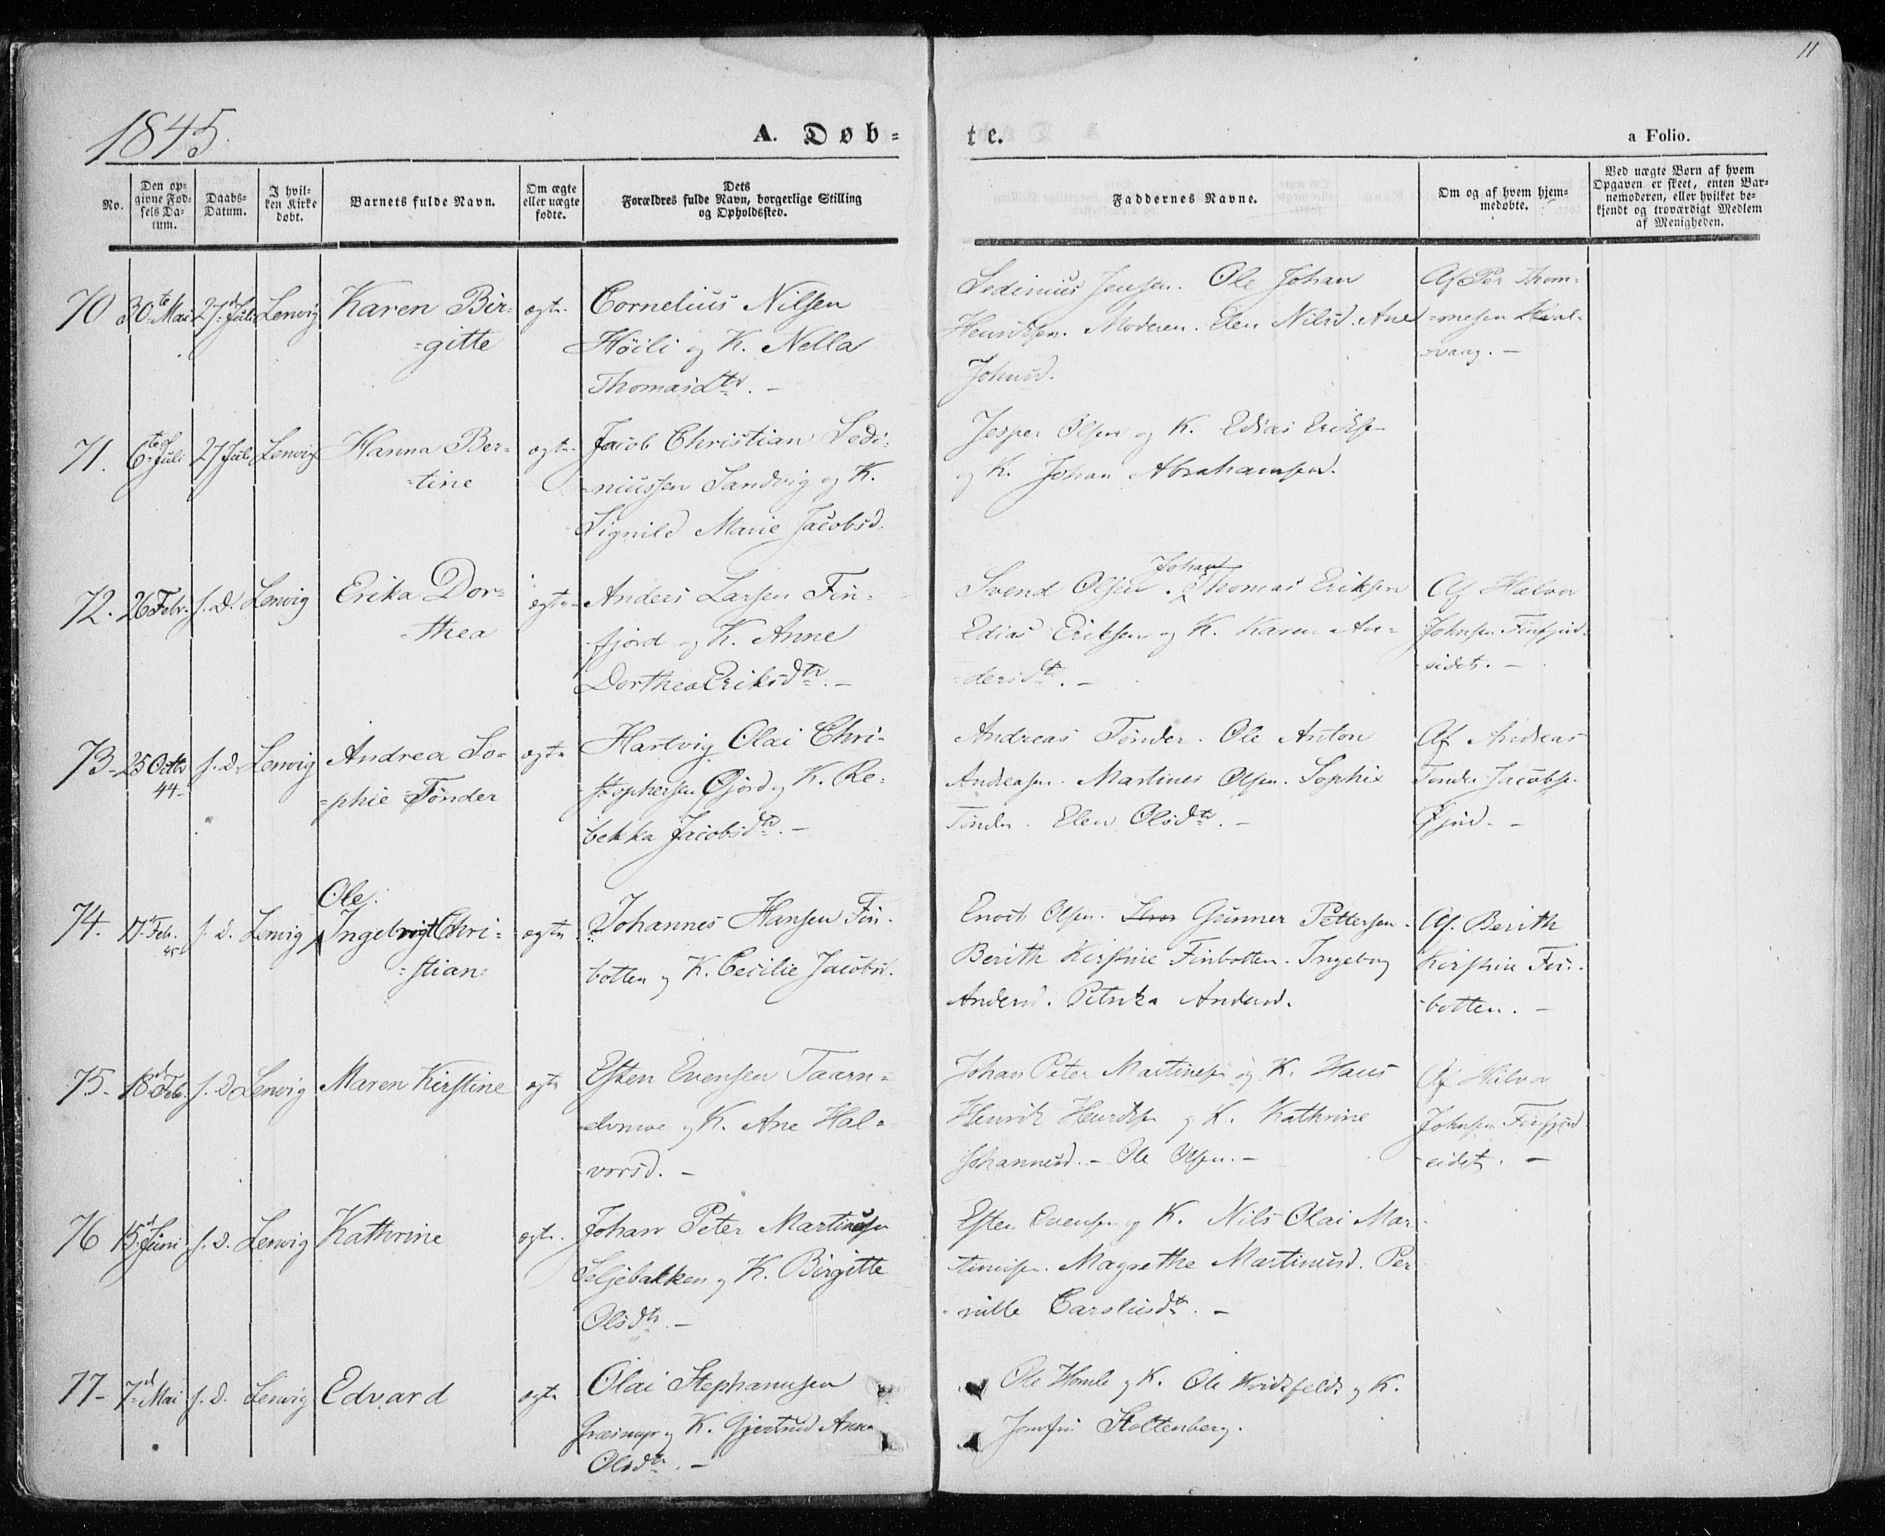 11
1845.
A. Døb-
te.
a Folio.
No.
Den op-
givne Fød-
sels Da-
tum.
Daabs-
Datum.
I hvil-
ken Kirke
døbt.
Barnets fulde Navn.
Om ægte
eller uægte
fødte.
Dets
Forældres fulde Navn, borgerlige Stilling
og Opholdsted.
Faddernes Navne.
Om og af hvem hjem-
medøbte.
Ved uægte Børn af hvem
Opgaven er skeet, enten Bar-
nemoderen, eller hvilket be-
kjendt og troværdigt Medlem
af Menigheden.
70 30te Mai 27d Juli Lenvig Karen Bir- ægte. Cornelius Nilsen
-gitte Høili og K. Nella
Thomasdtr. -
Sedinius Jensen. Ole Johan
Henriksen. Moderen. Elen Nilsd. Ane
Johnsd.
Af Per Thom-
-mesen
-vang. -
71. 6te Juli 27 Juli Lenvig Hanna Ber- ægte. Jacob Christian Sedi-
-tine -niussen Sandvig og K.
Signild Marie Jacobsd.
Jesper Olsen og K. Edias Eriks-
og K. Johan Abrahamsen.
72. 26 Febr. s. D. Lenvig Erika Dor- ægte Anders Larsen Fin-
-thea -fjord og K. Anne
Dorthea Eriksdtr. -
Johan
Svend Olsen. Thomas Eriksen
Edias Eriksen og K. Karen An-
-dersdtr. -
Af Halvor
Johnsen Finfjord-
-eidet. -
73- 25 Octbr s. D. Lenvig Andrea So- ægte Hartvig Olai Chri-
44- -phie Tønder -stophersen Øjord og K. Re-
bekka Jacobsdtr. -
Andreas Tønder. Ole Anton
Andreasen. Martinus Olsen. Sophie
Tønder. Elen Olsdtr. -
Af Andreas
Tønder Jacobsen
Øjord. -
Ole
74. 17d Feb. s. D. Lenvig Ingebrigt Chri- ægte Johannes Hansen Fin-
45 -stian botten og K. Cecilie Jacobsd.
Enoch Olsen. Gunner Pettersen.
Berith Kirstine Finbotten. Ingeborg
Andersd. Petrika Andersd.
Af Berith
Kirstine Fin-
-botten. -
75- 18d Feb. s. D. Lenvig Maren Kirstine ægte Esten Evensen Taarn-
-elvmoe og K. Ane Hal-
-vorsd. -
Johan Peter Martinsen og K. Hans
Henrik Henriksen og K. Kathrine
Johannesd. - Ole Olsen. -
Af Halvor
Johnsen Finfjord
-eidet. -
76 15d Juni s. D. Lenvig Kathrine ægte. Johan Peter Martinusen
Seljebakken og K. Birgitte
Olsdtr. -
Esten Evensen og K. Nils Olai Mar-
tinusen. Magrethe Martinusd. Per
-nille Carolusdtr. -
77- 7d Mai s. D. Lenvig Edvard ægte Olai Stephanusen
Græsmyr og K. Gjertrud Anna
Olsdtr. -
Ole Homle og K. Ole Kvidsfeldt og K.
Jomfru Stoltenberg.